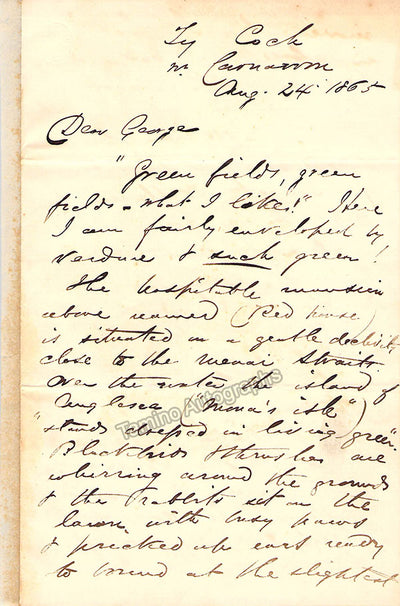 Ty Coch
nr. Carnarvon
Aug. 24 1865
Dear George
"Green fields, green
fields - what I like!" Here
I am fairly enveloped by
verdure & such green!
The hospitable mansion
above named (Red house)
is situated on a gentle declivity
close to the Menai Straits.
Over the water the island of
Anglesea ("Mona's isle")
"stands dressed in living green".
Blackbirds & thrushes are
whirring around the grounds
& the rabbits sit on the
lawn with busy paws
& pricked up ears ready
to bound at the slightest
Tamino Autographs